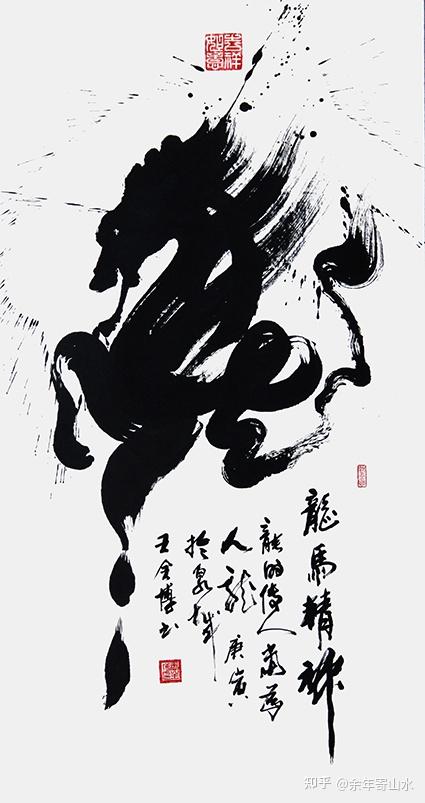 吉祥如意
龍馬精神
龍的傳人
人龍 庚寅
於泉城
王博书
知乎 @余年寄山水